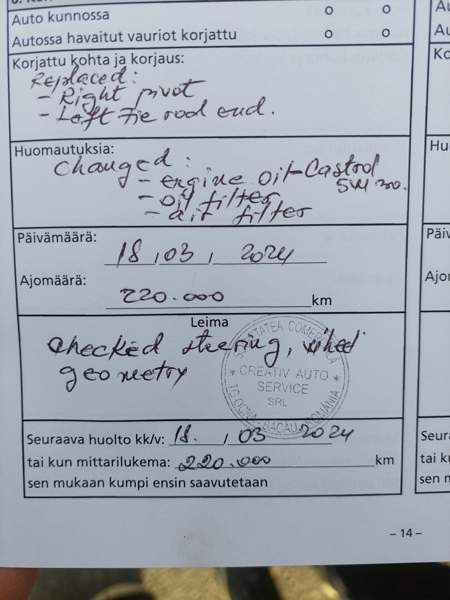 Auto kunnossa o o
Autossa havaitut vauriot korjattu o o
Korjattu kohta ja korjaus:
Replaced:
- Right pivot
- Left Tie rod end.
Huomautuksia:
Changed:
- engine oil-Castrol
5W30.
- oil filter
- air filter
Päivämäärä:
18,03, 2024
Ajomäärä:
220.000 km
Leima
checked steering,
geometry
SOCIETATEA COMERCIALA
CREATIV AUTO
SERVICE
SRL
TG-OCNA BACAU ROMÂNIA
Seuraava huolto kk/v: 18. , 03 2024
tai kun mittarilukema: 220.000 km
sen mukaan kumpi ensin saavutetaan
- 14 -